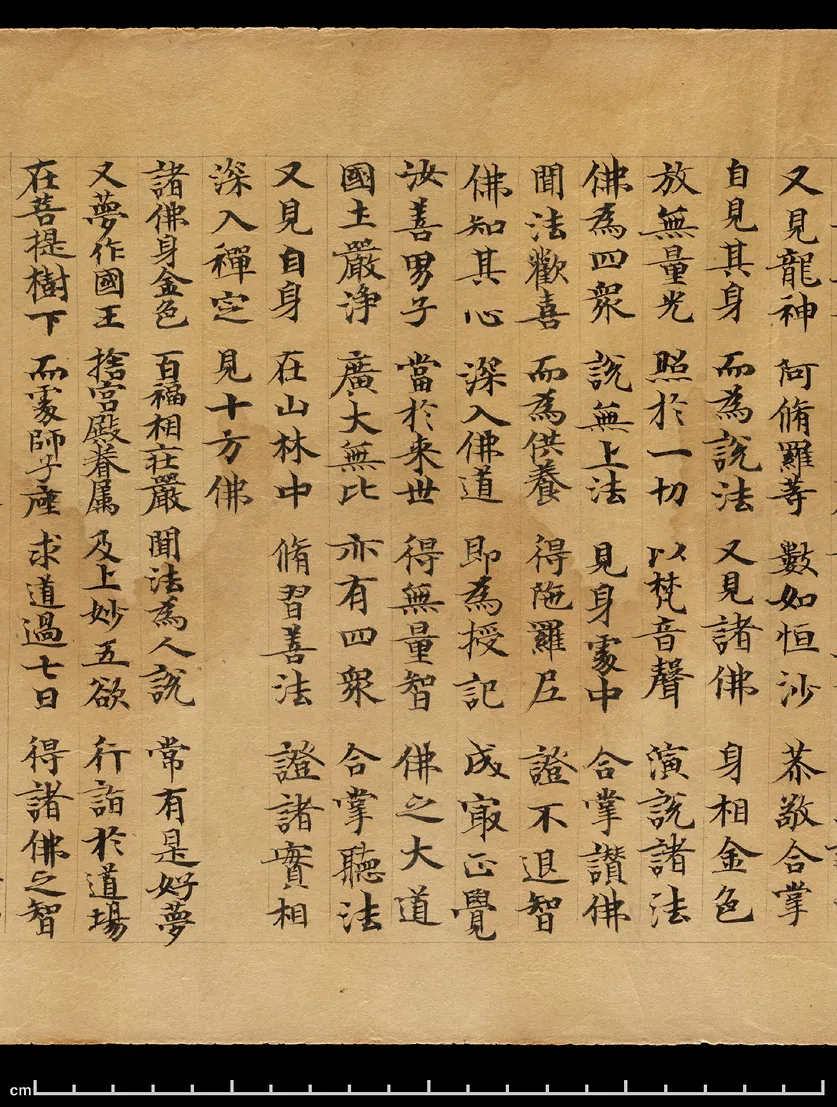 又見龍神 阿脩羅等 數如恒沙 恭敬合掌
自見其身 而為說法 又見諸佛 身相金色
放無量光 照於一切 以梵音聲 演說諸法
佛為四衆 說無上法 見身處中 合掌讚佛
聞法歡喜 而為供養 得陁羅尼 證不退智
佛知其心 深入佛道 即為授記 成冣正覺
汝善男子 當於来世 得無量智 佛之大道
國土嚴淨 廣大無比 亦有四衆 合掌聽法
又見自身 在山林中 脩習善法 證諸實相
深入禪定 見十方佛
諸佛身金色 百福相莊嚴 聞法為人說 常有是好夢
又夢作國王 捨宮殿眷属 及上妙五欲 行詣於道場
在菩提樹下 而處師子座 求道過七日 得諸佛之智
cm